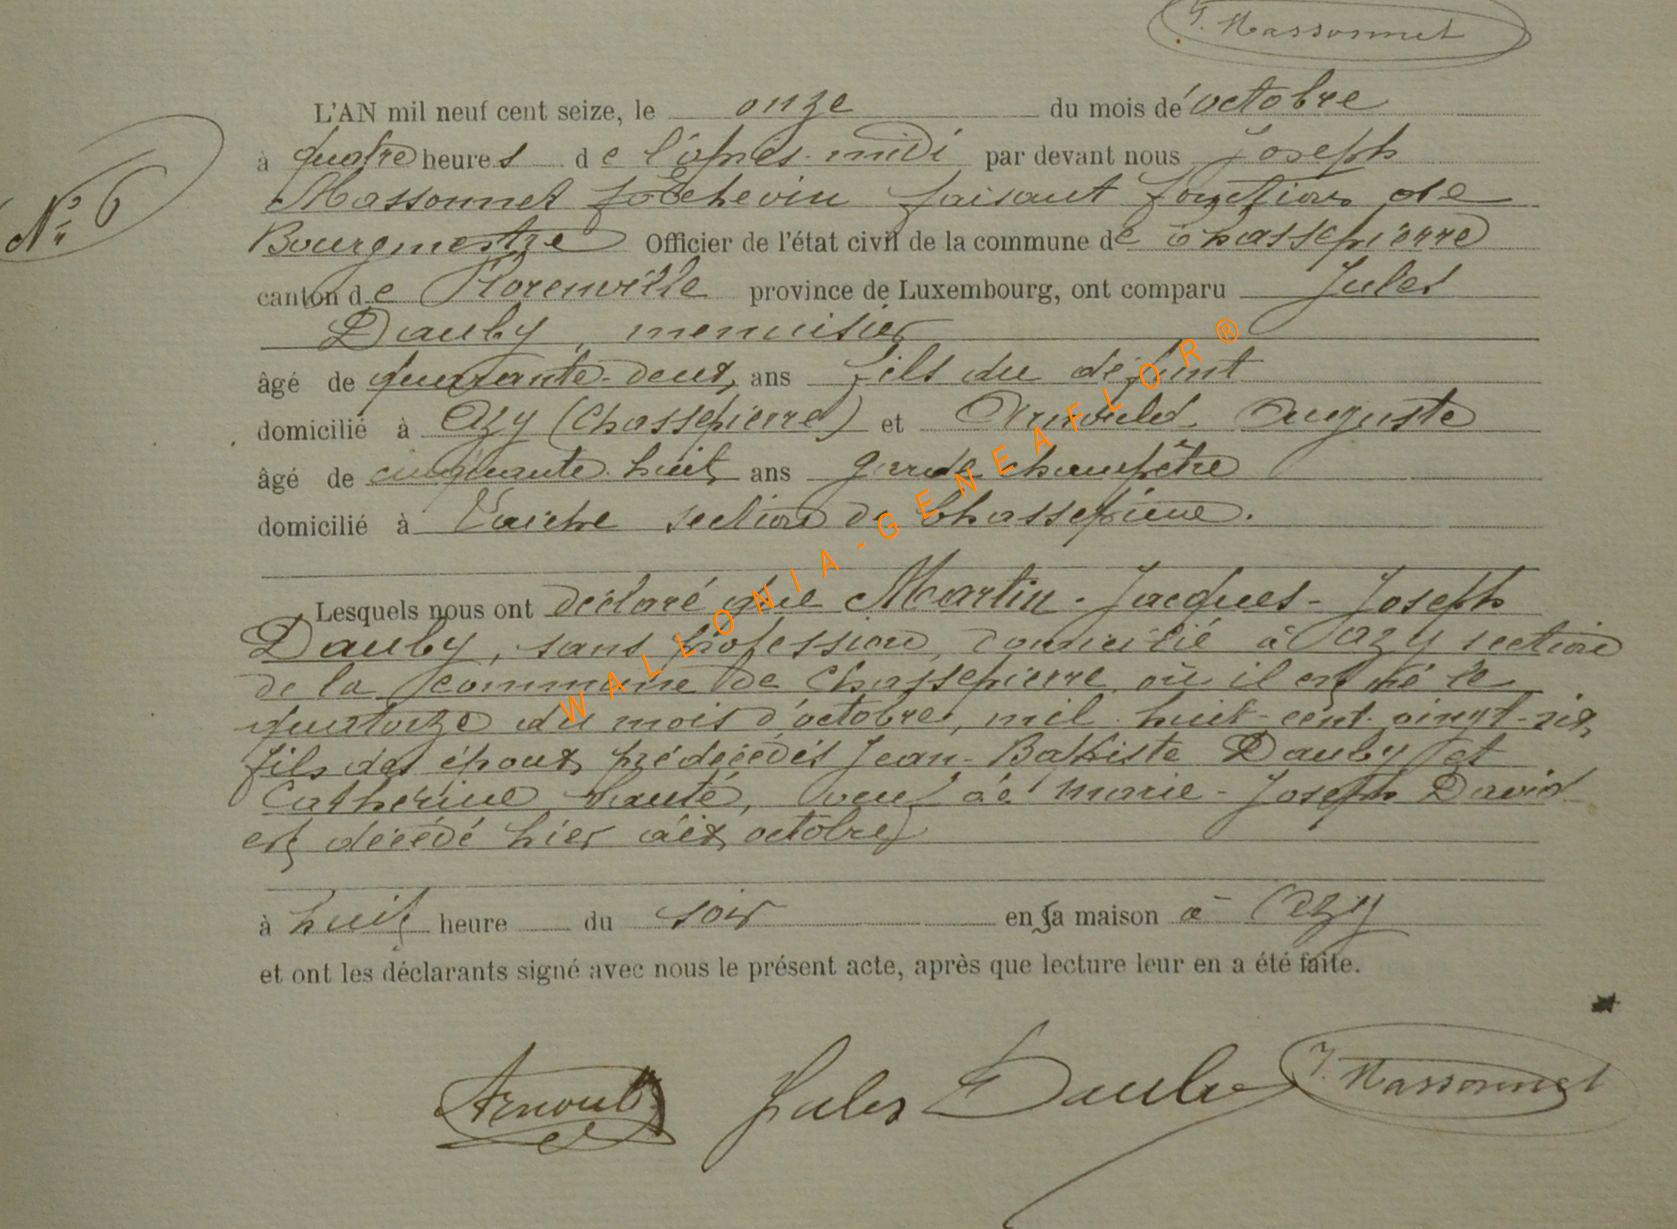 J. Massonnet
L'AN mil neuf cent seize, le onze du mois de octobre
à quatre heures de l'après-midi par devant nous Joseph
N° 6
Massonnet Echevin faisant fonctions de
Bourgmestre Officier de l'état civil de la commune de Chassepierre
canton de Florenville province de Luxembourg, ont comparu Jules
Dauby, menuisier
âgé de quarante-deux ans fils du défunt
domicilié à Azy (Chassepierre) et Arnould Auguste
âgé de cinquante huit ans garde champêtre
domicilié à Laiche section de Chassepierre.
Lesquels nous ont déclaré que Martin-Jacques-Joseph
Dauby, sans profession, domicilié à Azy section
de la commune de Chassepierre où il est né le
quatorze du mois d'octobre, mil huit-cent-vingt-six,
fils des époux prédécédés Jean-Baptiste Dauby et
Catherine, veuf de Marie-Joseph David
est décédé hier dix octobre
à huit heure du soir en sa maison à Azy
et ont les déclarants signé avec nous le présent acte, après que lecture leur en a été faite.
Arnould Jules Dauby J. Massonnet
WALLONIA-GENEAFLOR ®